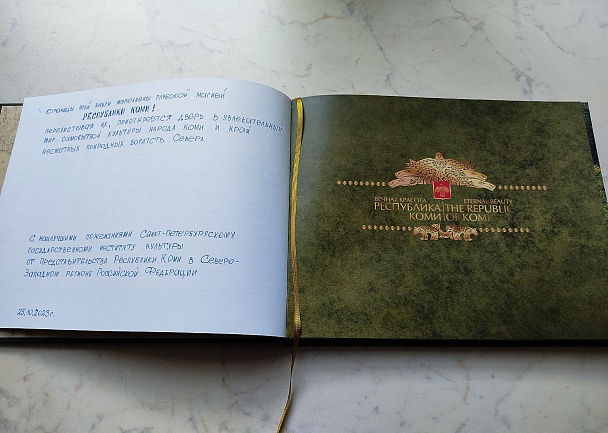 Страницы этой книги наполнены глубокой магией
РЕСПУБЛИКИ КОМИ!
Перелистывая их, приоткроется дверь в увлекательный
мир самобытной культуры народа Коми и край
несметных природных богатств Севера.
С наилучшими пожеланиями Санкт-Петербургскому
государственному институту культуры
от Представительства Республики Коми в Северо-
Западном регионе Российской Федерации
25.10.2023 г.
ВЕЧНАЯ КРАСОТА ETERNAL BEAUTY
РЕСПУБЛИКА THE REPUBLIC
КОМИ OF KOMI